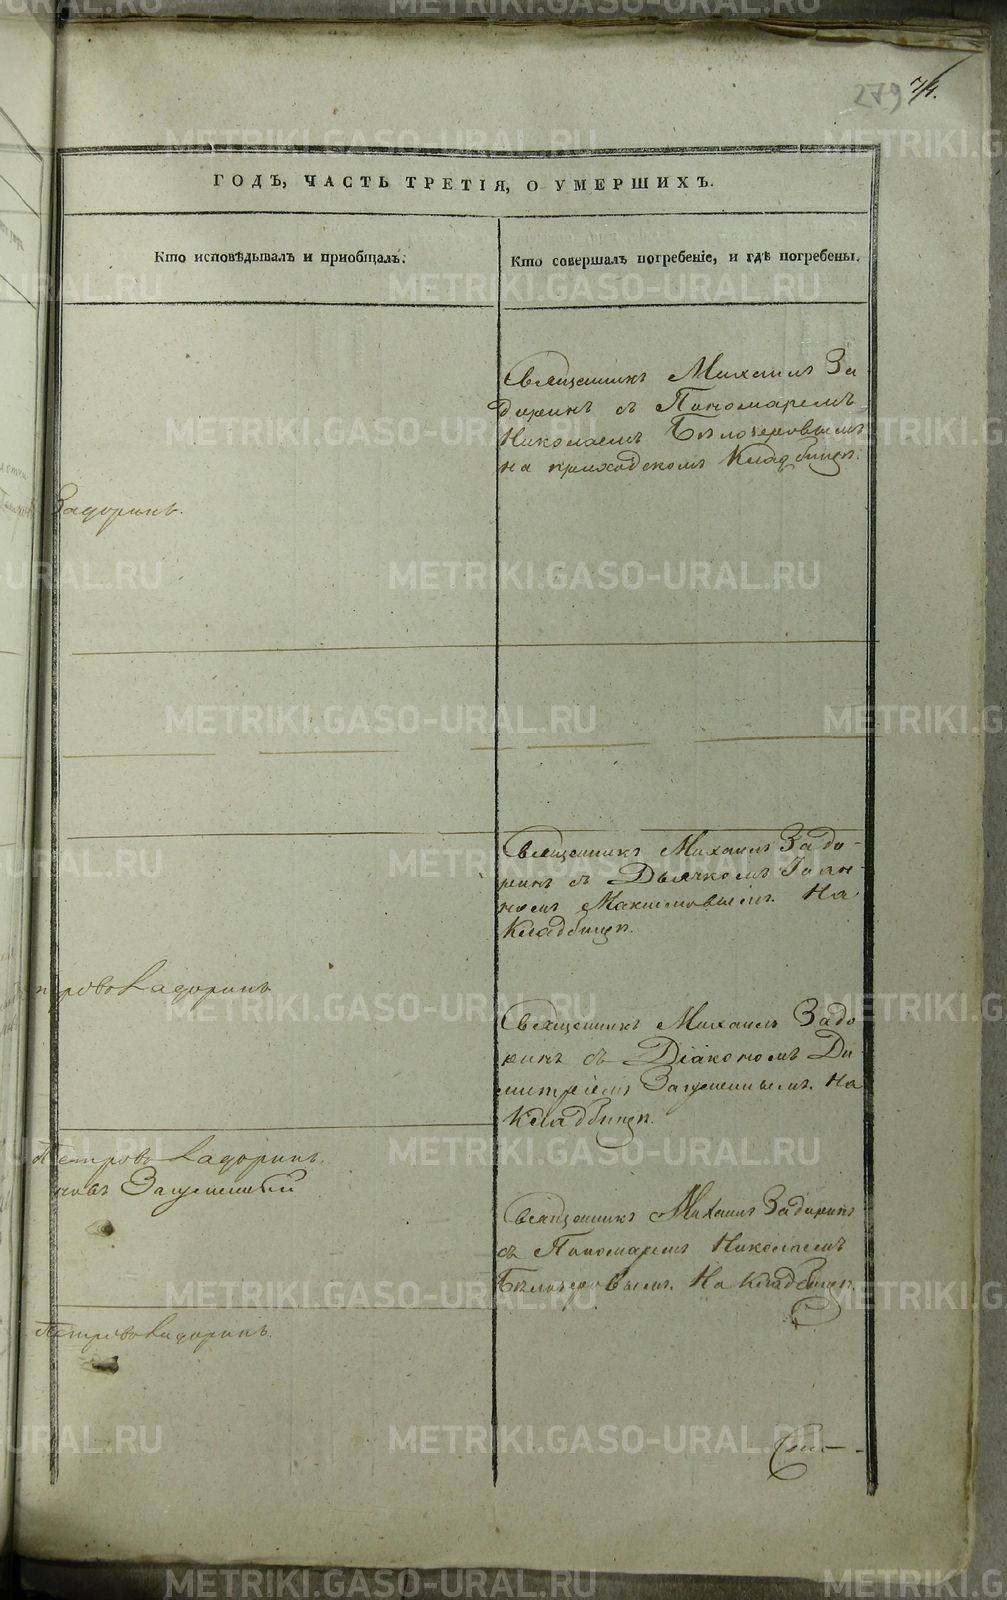 279 74.
ГОДЪ, ЧАСТЬ ТРЕТІЯ, О УМЕРШИХЪ.
Кто исповѣдывалъ и приобщалъ.
Кто совершалъ погребеніе, и гдѣ погребены.
Священникъ Михаилъ За
доринъ съ Пономаремъ
Николаемъ Бѣлозеровымъ
на приходскомъ Кладбищѣ.
Задоринъ.
Священникъ Михаилъ Задо-
ринъ съ Дьячкомъ Іоан-
номъ Максимовымъ. На
Кладбищѣ.
Задоринъ
Священникъ Михаилъ Задо
ринъ съ Діакономъ Ди
митріемъ На
Кладбищѣ.
Петрово Задоринъ.
Священникъ Михаилъ Задоринъ
съ Пономаремъ Николаемъ
Бѣлозеровымъ. На Кладбищѣ.
Петрово Задоринъ.
METRIKI.GASO-URAL.RU